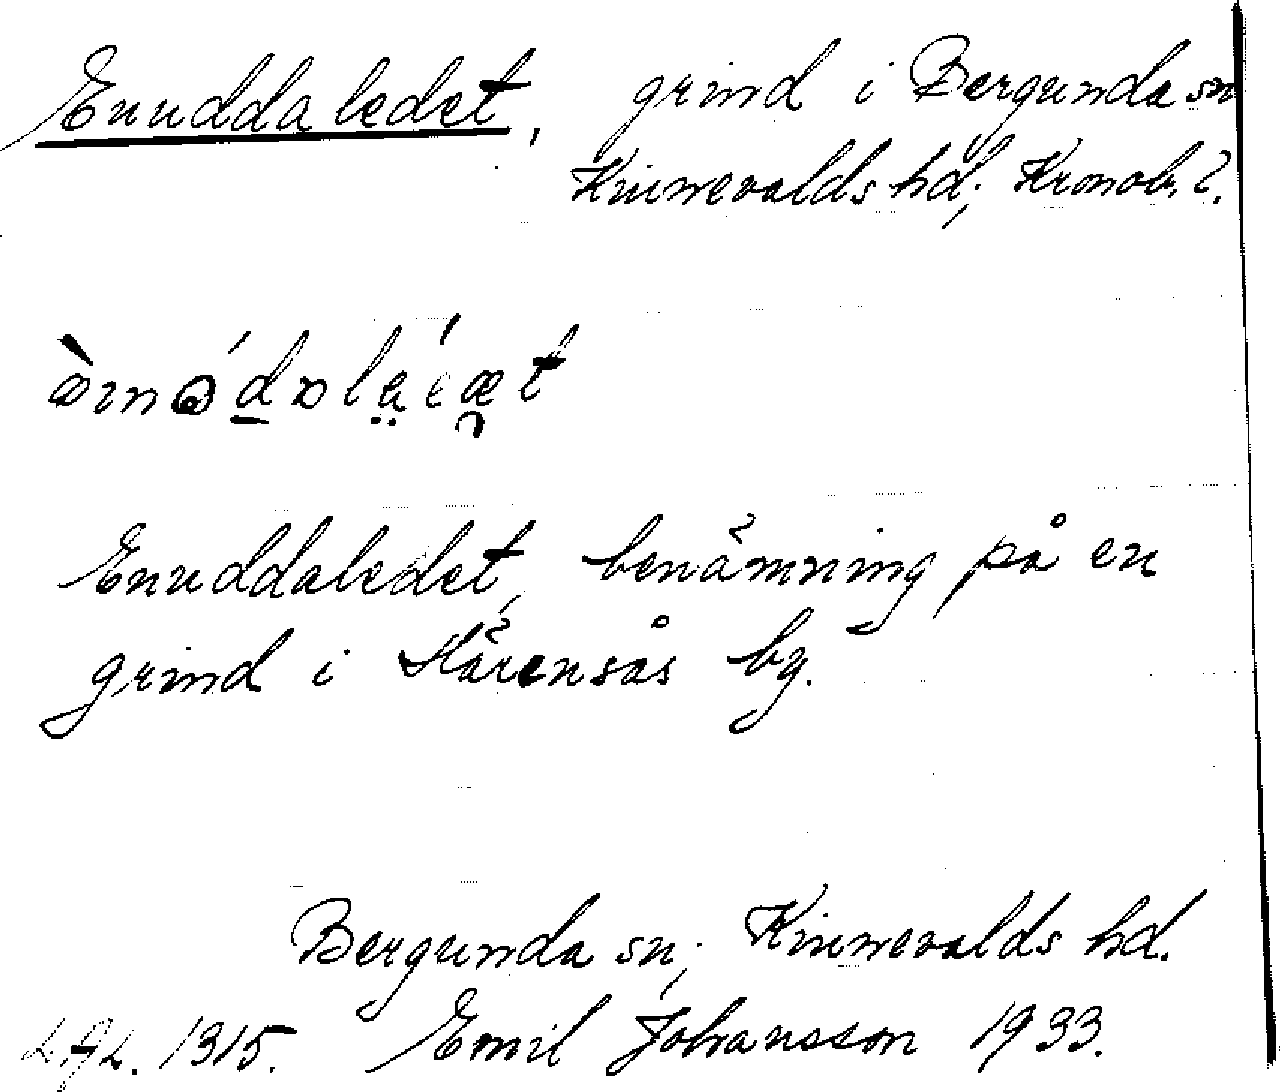 Enuddaledet, grind i Bergunda sn
Kinnevalds hd, Kronob. l.
Enuddaledet, benämning på en
grind i Härensås by.
Bergunda sn, Kinnevalds hd.
LAL. 1315. Emil Johansson 1933.